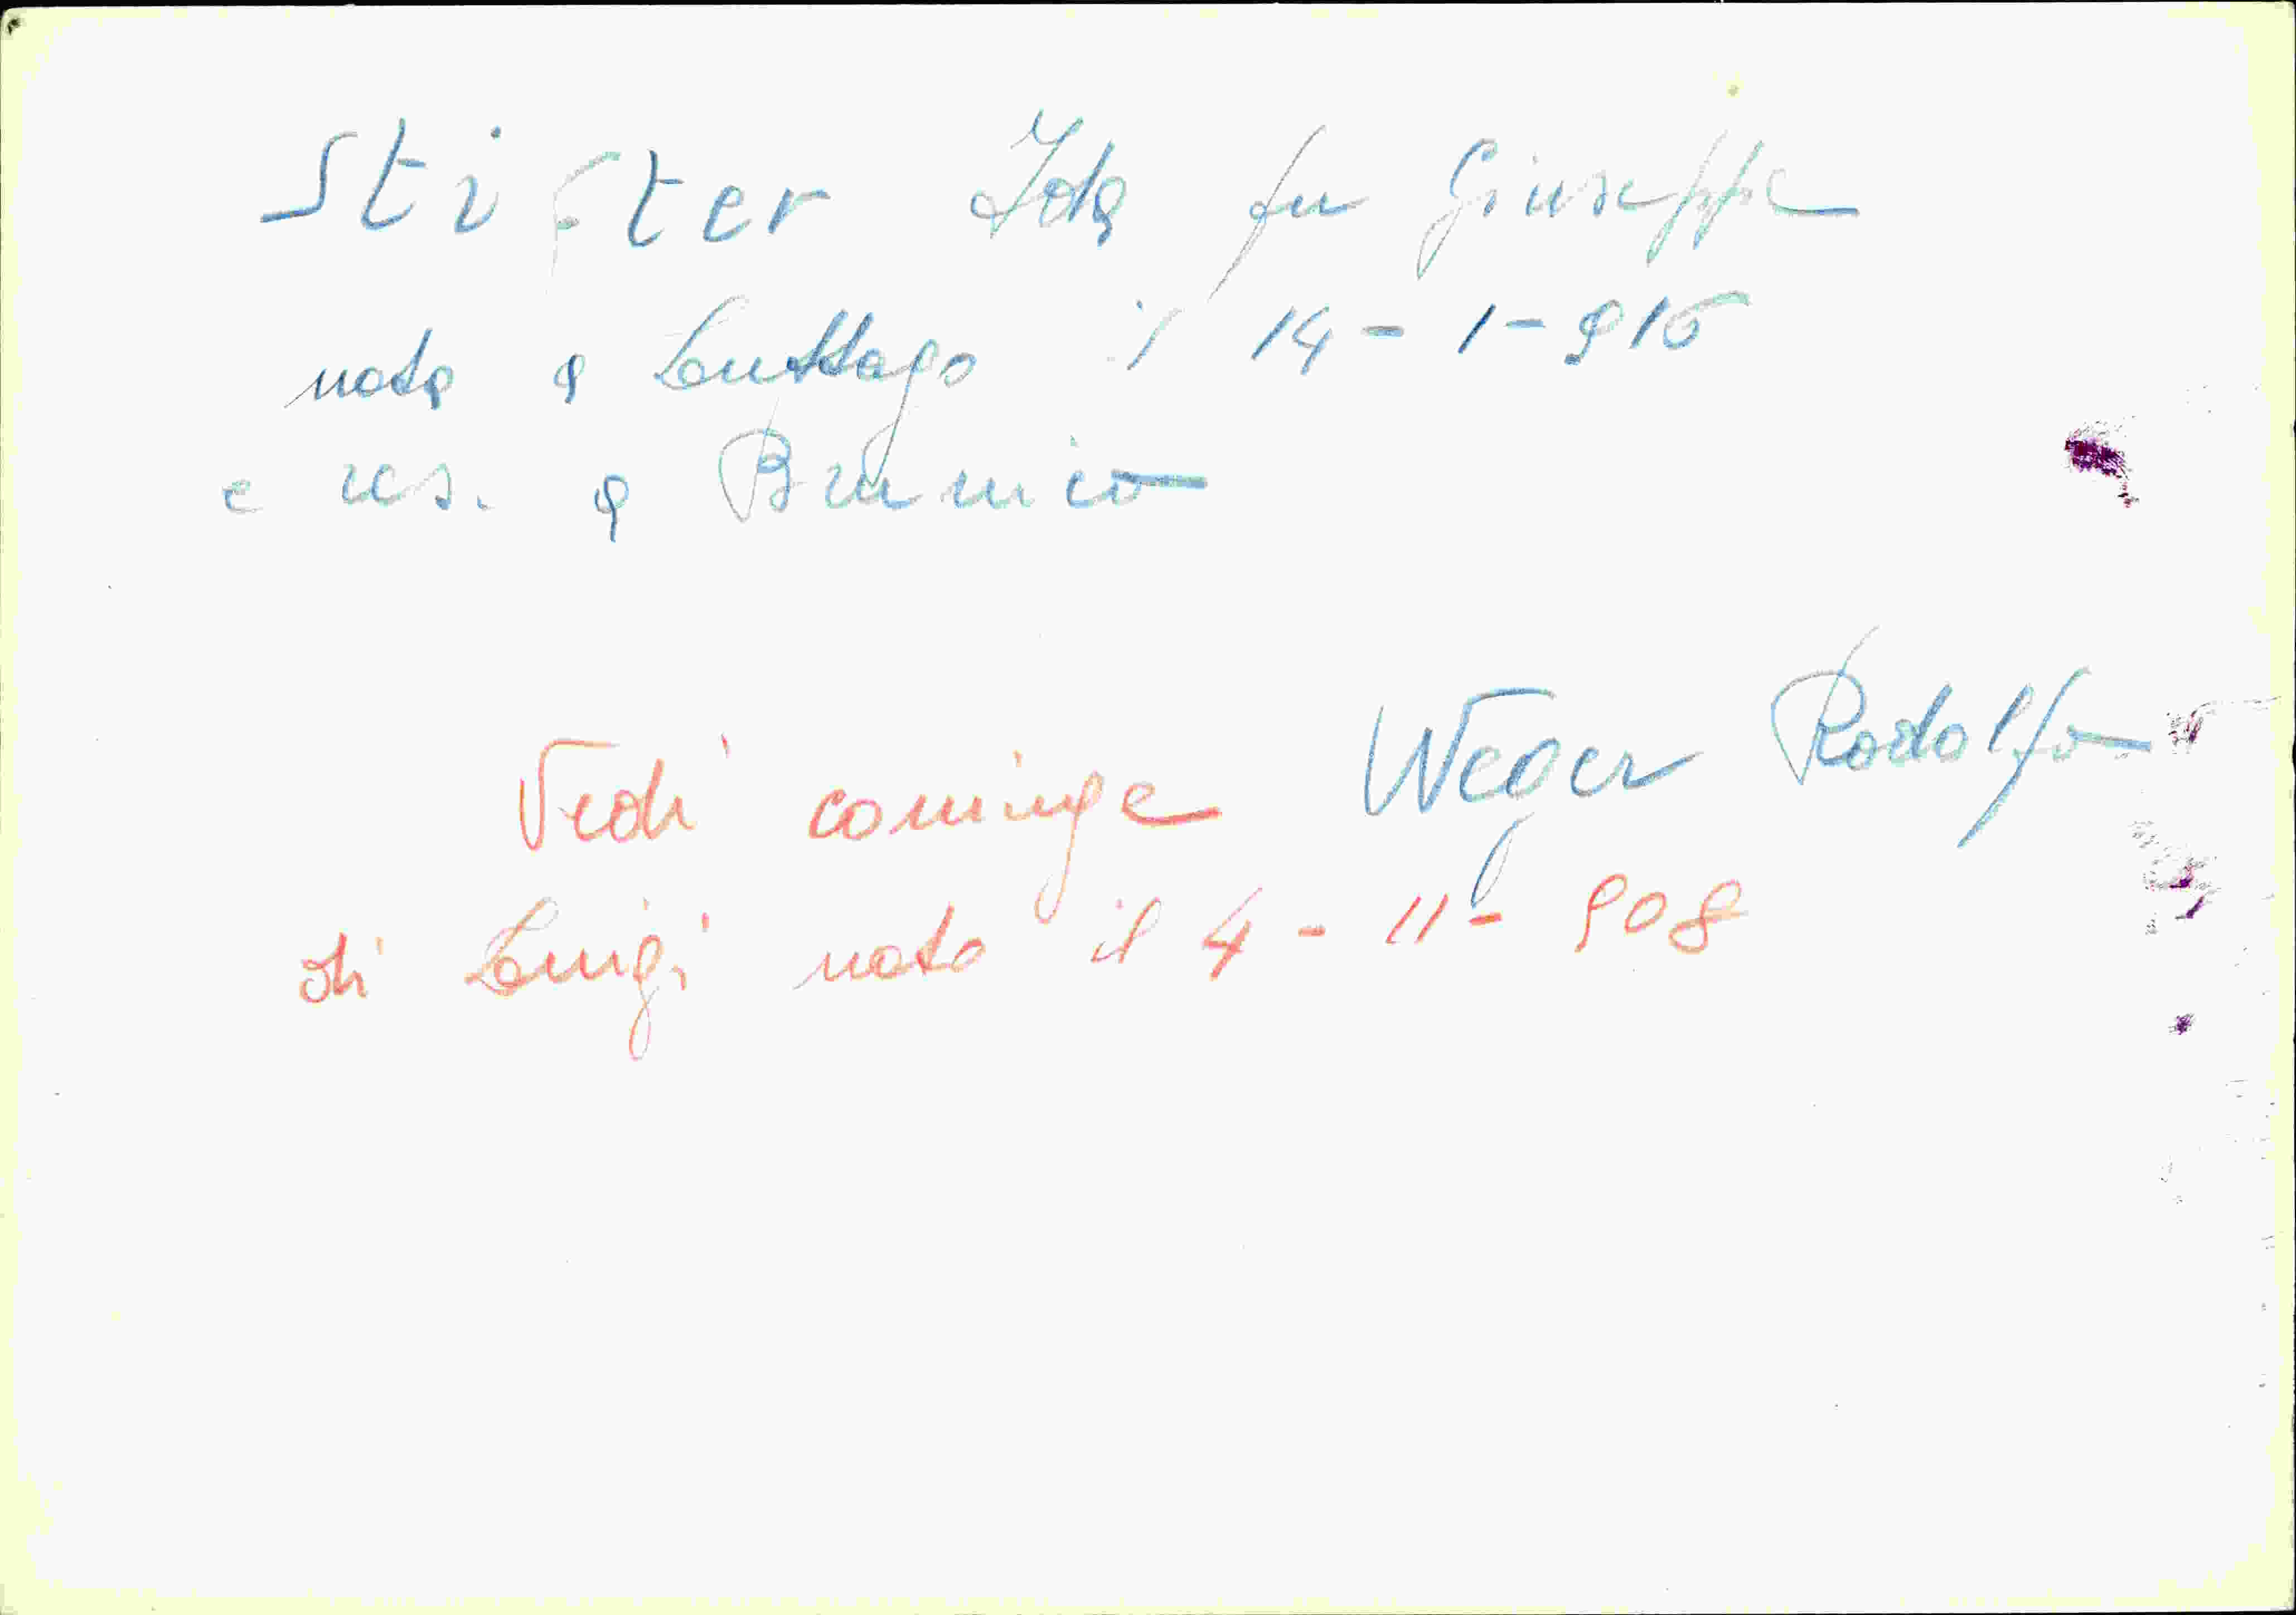 Stifter Ida fu Giuseppe
nata a Luttago il 14 - 1 - 915
e res. a Brunico
Vedi coniuge Weger Rodolfo
di Luigi nato il 4 - 11 - 908